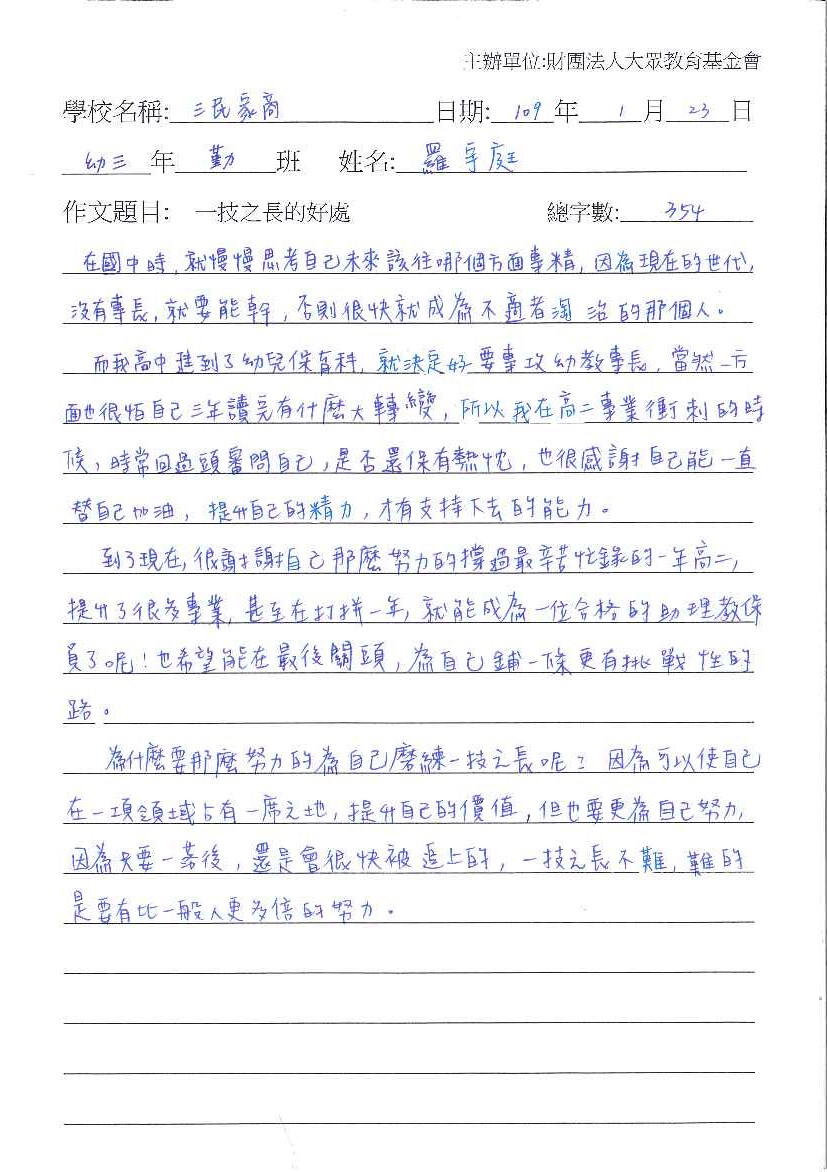 主辦單位:財團法人大眾教育基金會
學校名稱: 三民家商 日期: 109 年 1 月 23 日
幼三 年 勤 班 姓名: 羅宇庭
作文題目: 一技之長的好處 總字數: 354
在國中時,就慢慢思考自己未來該往哪個方面專精,因為現在的世代,
沒有專長,就要能幹,否則很快就成為不適者淘汰的那個人。
而我高中進到了幼兒保育科,就決定好要專攻幼教專長,當然一方
面也很怕自己三年讀完有什麼大轉變,所以我在高二專業衝刺的時
候,時常回過頭審問自己,是否還保有熱忱,也很感謝自己能一直
替自己加油,提升自己的精力,才有支持下去的能力。
到了現在,很謝謝自己那麼努力的撐過最辛苦忙錄的一年高二,
提升了很多專業,甚至在打拼一年,就能成為一位合格的助理教保
員了呢!也希望能在最後關頭,為自己鋪一條更有挑戰性的
路。
為什麼要那麼努力的為自己磨練一技之長呢?因為可以使自己
在一項領域占有一席之地,提升自己的價值,但也要更為自己努力,
因為只要一落後,還是會很快被追上的,一技之長不難,難的
是要有比一般人更多倍的努力。